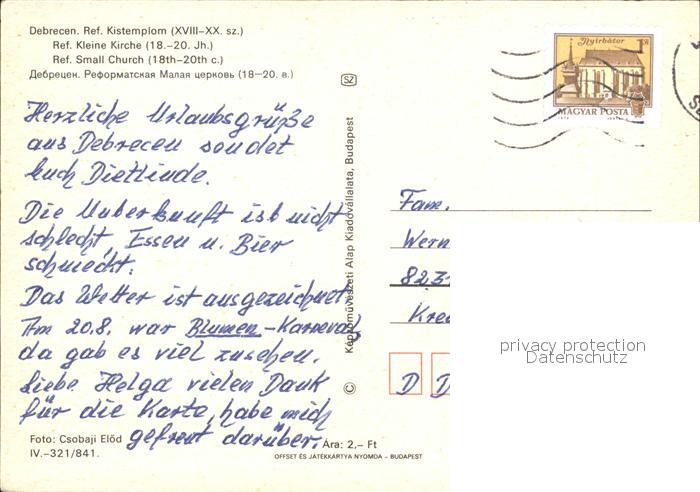 Debrecen. Ref. Kistemplom (XVIII–XX. sz.)
Ref. Kleine Kirche (18.–20. Jh.)
Ref. Small Church (18th–20th c.)
Дебрецен. Реформатская Малая церковь (18—20. в.)
SZ
Nyírbátor
1 Ft
MAGYAR POSTA
Herzliche Urlaubsgrüße
aus Debrecen sendet
Euch Dietlinde.
Die Unterkunft ist nicht
schlecht, Essen u. Bier
schmeckt.
Das Wetter ist ausgezeichnet.
Am 20.8. war Blumen-Karneval,
da gab es viel zusehen.
Liebe Helga vielen Dank
für die Karte, habe mich
gefreut darüber.
Képzőművészeti Alap Kiadóvállalata, Budapest
©
Fam.
Wern
823
Kre
D D
privacy protection
Datenschutz
Foto: Csobaji Előd
IV.–321/841.
Ára: 2,– Ft
OFFSET ÉS JÁTÉKKÁRTYA NYOMDA – BUDAPEST